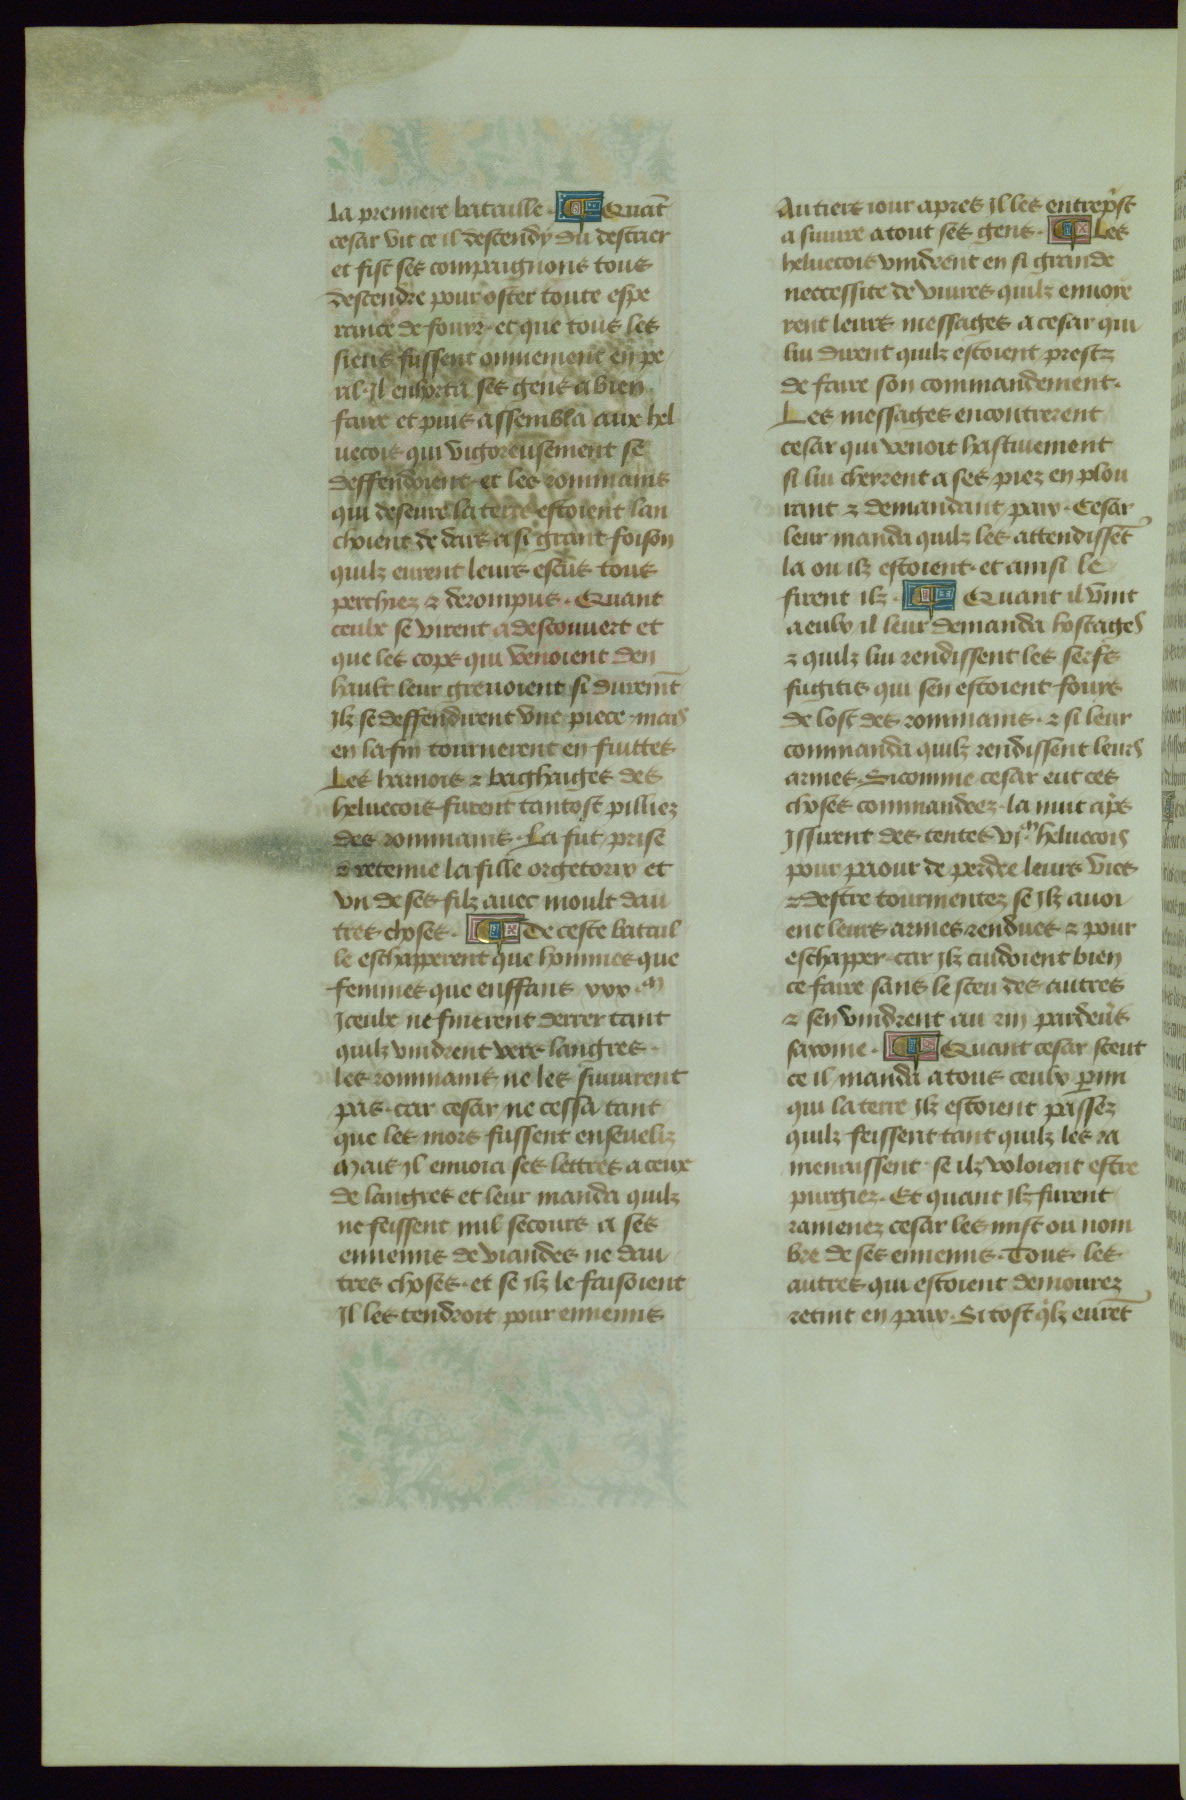 la premiere bataille · Quāt
cesar vit ce il descendy du destrier
et fist ses compaignons tous
descendre pour oster toute espe
rance de fouyr · et que tous les
siens fussent onniement en pe
ril · Il enhorta ses gens a bien
faire et puis assembla aux hel
uecois qui vigoreusement se
deffendoient · et les rommains
qui deseure la terre estoient lan
choient de dars a si grant foison
quilz eurent leurs escus tous
perchiez & derompus · Quant
ceulx se virent a descouuert et
que les cops qui venoient den
hault leur greuoient si duremt̄
Ilz se deffendirent vne piece · mais
en la fin tournerent en fuittes
Les harnois & baghaiges des
heluecois furent tantost pilliez
des rommains · La fut prise
& retenue la fille orgetorix et
vn de ses filz auec moult dau
tres choses · De ceste batail
le eschapperent que hommes que
femmes que enffans xxx · m
Iceulx ne finerent derrer tant
quilz vindrent vers langres ·
les rommains ne les suiuirent
pas · car cesar ne cessa tant
que les mors fussent enseueliz
Mais Il enuoia ses lettres a ceux
de langres et leur manda quilz
ne feissent nul secours a ses
ennemis de viandes ne dau
tres choses · et se Ilz le faisoient
Il les tendroit pour ennemis
Au tiers iour apres Il les entrep̄st
a suiure a tout ses gens · Les
heluecois vindrent en si grande
neccessite de viures quilz enuoie
rent leurs messages a cesar qui
lui dirent quilz estoient prestz
de faire son commandement ·
Les messages encontrerent
cesar qui venoit hastiuement
si lui cheirent a ses piez en plou
rant & demandant paix · Cesar
leur manda quilz les attendissēt
la ou ilz estoient · et ainsi le
firent ilz · Quant il vint
a eulx il leur demanda hostages
& quilz lui rendissent les serfs
fugitis qui sen estoient fouys
de lost des rommains · & si leur
commanda quilz rendissent leurs
armes · Si comme cesar eut ces
choses commandees · la nuit ap̄s
Issirent des tentes vi m heluecois
pour paour de perdre leurs vies
& destre tourmentez se Ilz auoi
ent leurs armes rendues & pour
eschapper · car Ilz cuidoient bien
ce faire sans le sceu des autres
& sen vindrent au rin par deūs
saxonne · Quant cesar sceut
ce il manda a tous ceulx p̄mi
qui la terre Ilz estoient passez
quilz feissent tant quilz les ra
menaissent · se ilz voloient estre
purgiez · Et quant Ilz furent
ramenez cesar les mist ou nom
bre de ses ennemis · Tous les
autres qui estoient demourez
retint en paix · Si tost q̄lz eurēt